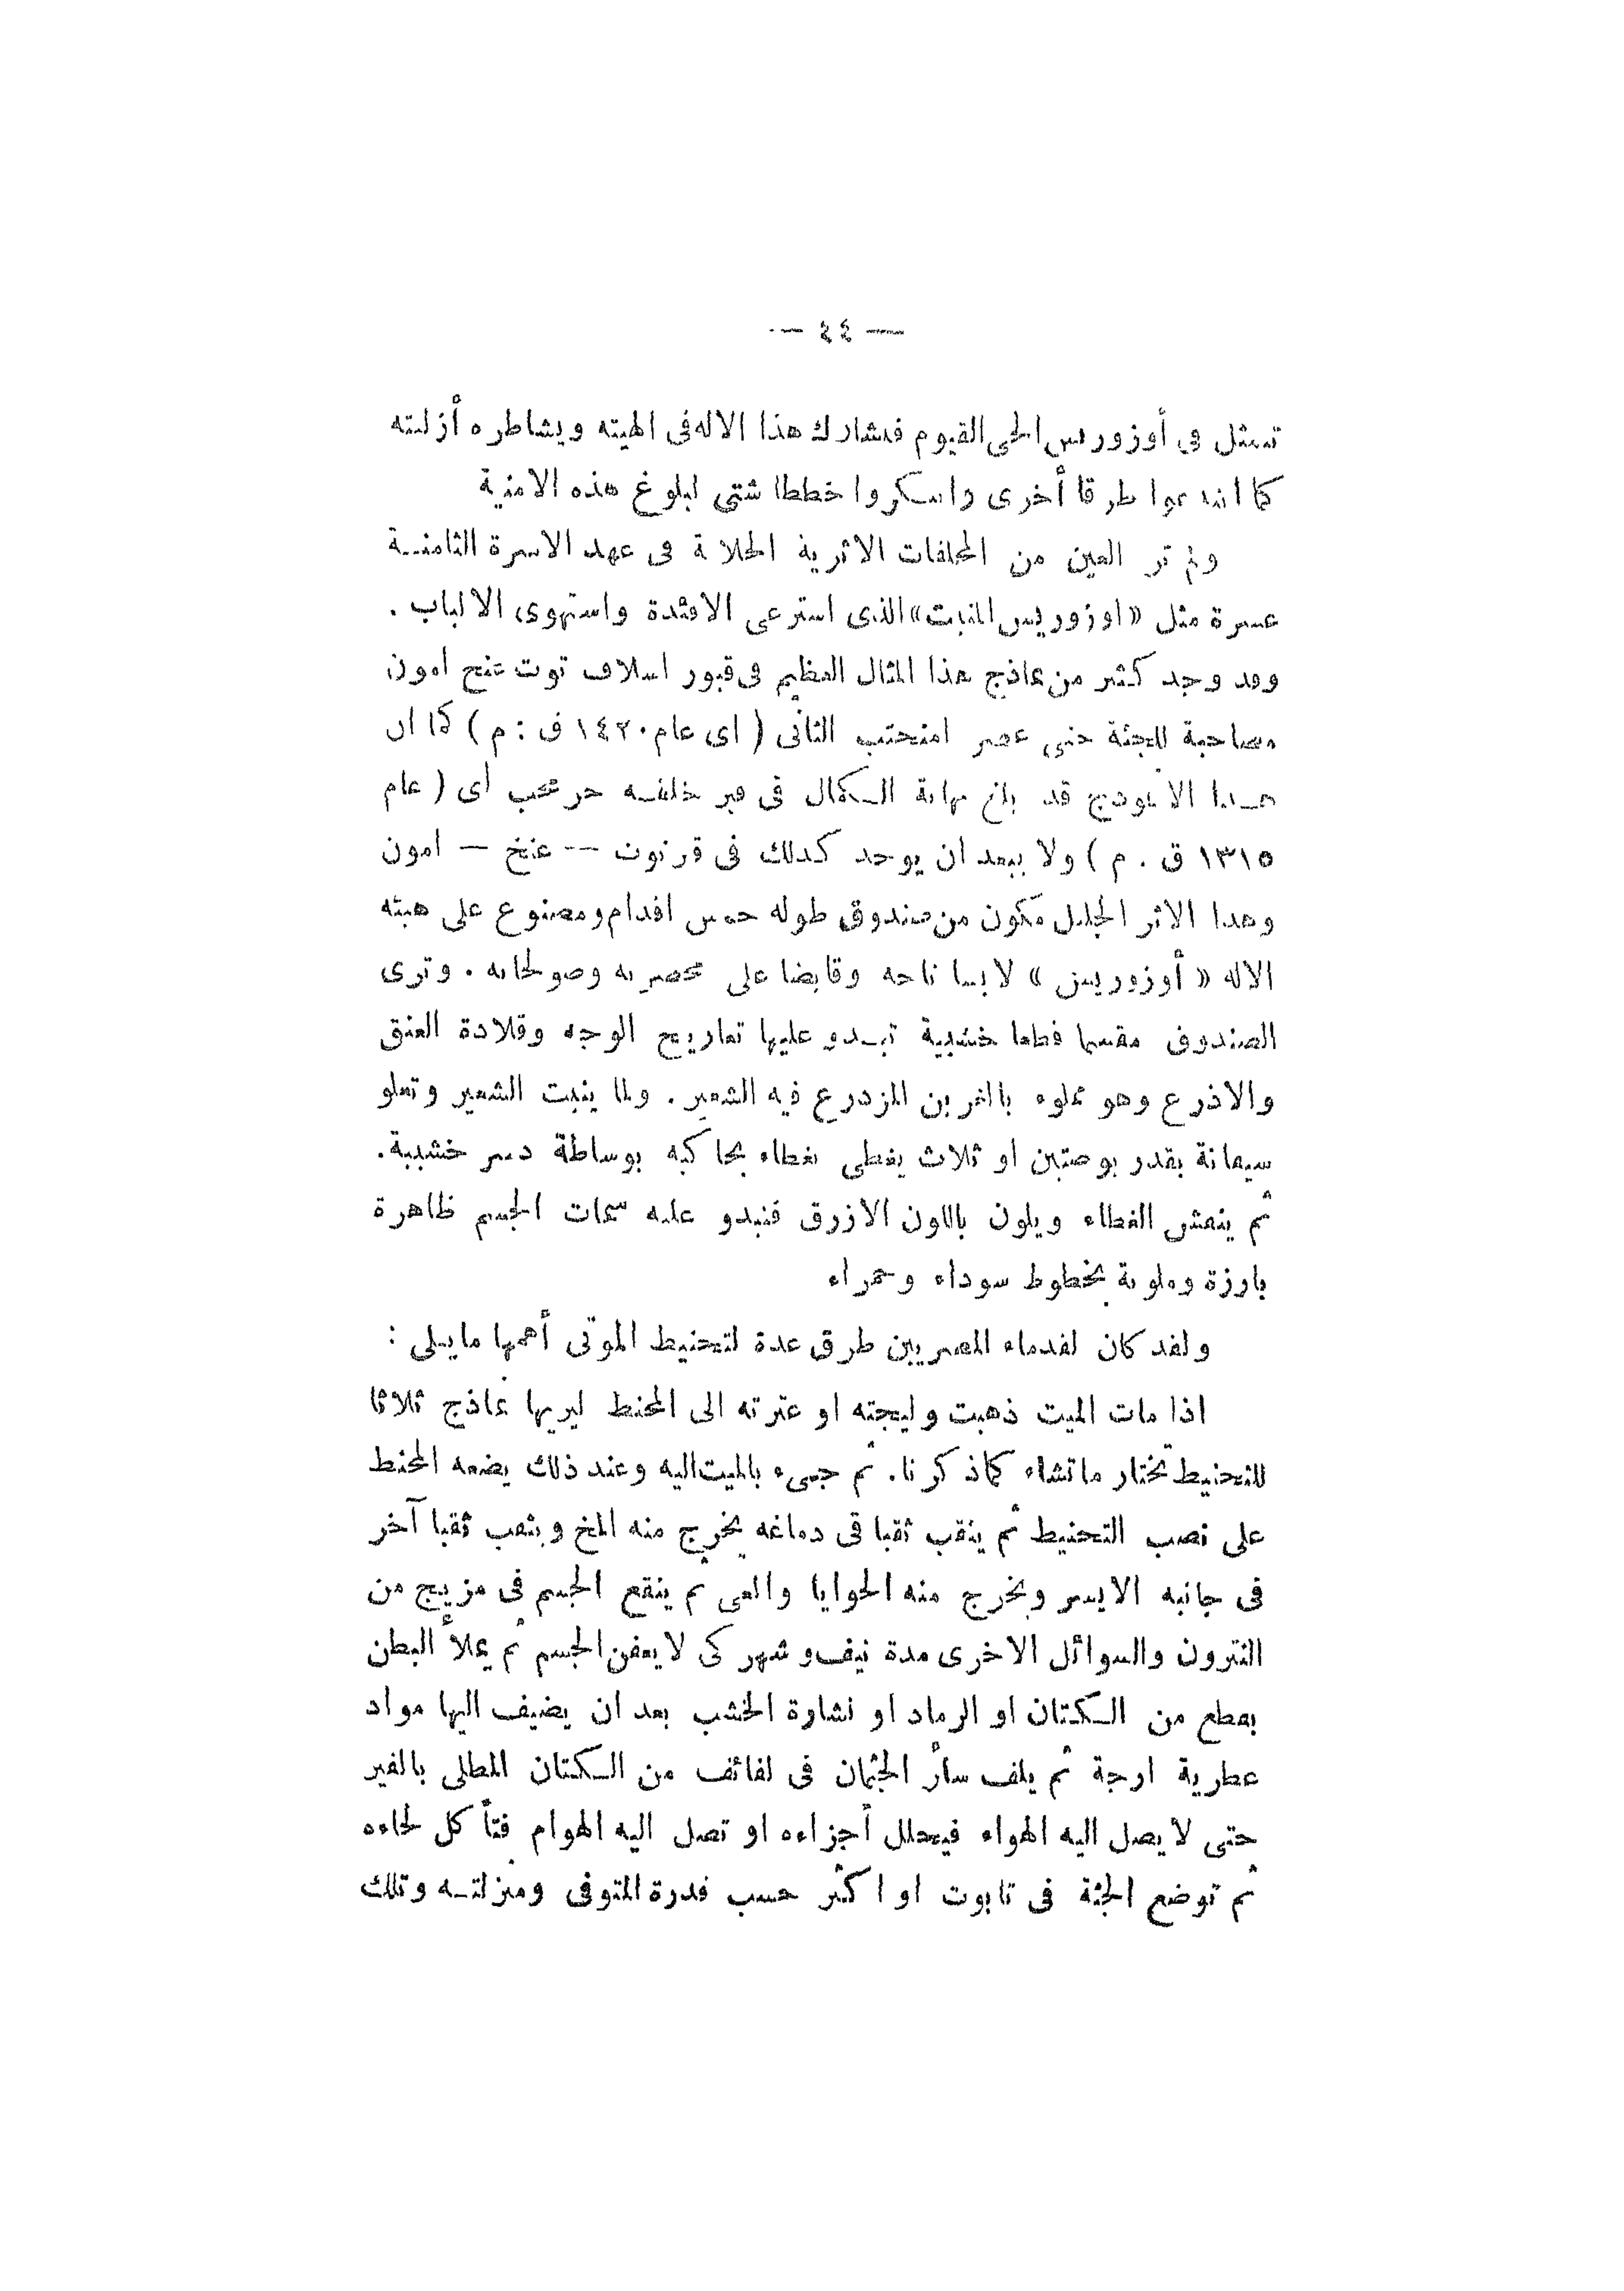 — ٤٤ —
تتمثل في أوزوريس الحي القيوم فيشارك هذا الاله في الهيته ويشاطره أزليته
كما ابتدعوا طرقا أخرى وابتكروا خططا شتى لبلوغ هذه الامنية
ولم تر العين من المخلفات الاثرية الخلابة في عهد الاسرة الثامنة
عشرة مثل «اوزوريس المنبت» الذى استرعى الافئدة واستهوى الالباب .
وقد وجد كثير من نماذج هذا المثال العظيم في قبور اسلاف توت عنخ امون
مصاحبة للجثة حتى عصر امنحتب الثانى ( اى عام ١٤٢٠ ق : م ) كما ان
هذا الانموذج قد بلغ نهاية الكمال في قبر خليفته حر محب أى ( عام
١٣١٥ ق . م ) ولا يبعد ان يوجد كذلك في قبر توت — عنخ — امون
وهذا الاثر الجليل مكون من صندوق طوله خمس اقدام ومصنوع على هيئة
الاله « أوزوريس » لابسا تاجه وقابضا على مخصرته وصولجانه . وترى
الصندوق مقسما قطعا خشبية تبدو عليها تعاريج الوجه وقلادة العنق
والاذرع وهو مملوء بالغرين المزدرع فيه الشعير . ولما ينبت الشعير وتعلو
سيقانه بقدر بوصتين او ثلاث يغطى بغطاء يحاكيه بوساطة دسر خشبية.
ثم ينقش الغطاء ويلون باللون الازرق فتبدو عليه سمات الجسم ظاهرة
بارزة وملونة بخطوط سوداء وحمراء
ولقد كان لقدماء المصريين طرق عدة لتحنيط الموتى أهمها ما يلى :
اذا مات الميت ذهبت وليجته او عترته الى المحنط ليريها نماذج ثلاثا
للتحنيط تختار ما تشاء كما ذكرنا. ثم جىء بالميت اليه وعند ذلك يضعه المحنط
على نصب التحنيط ثم ينقب ثقبا في دماغه يخرج منه المخ ويثقب ثقبا آخر
في جانبه الايسر ويخرج منه الحوايا والمعى ثم ينقع الجسم في مزيج من
النترون والسوائل الاخرى مدة نيف وشهر كى لا يعفن الجسم ثم يملأ البطن
بقطع من الكتان او الرماد او نشارة الخشب بعد ان يضيف اليها مواد
عطرية ارجة ثم يلف سائر الجثمان في لفائف من الكتان المطلى بالقير
حتى لا يصل اليه الهواء فيحلل أجزاءه او تصل اليه الهوام فتأكل لحاءه
ثم توضع الجثة في تابوت او اكثر حسب قدرة المتوفى ومنزلته وتلك